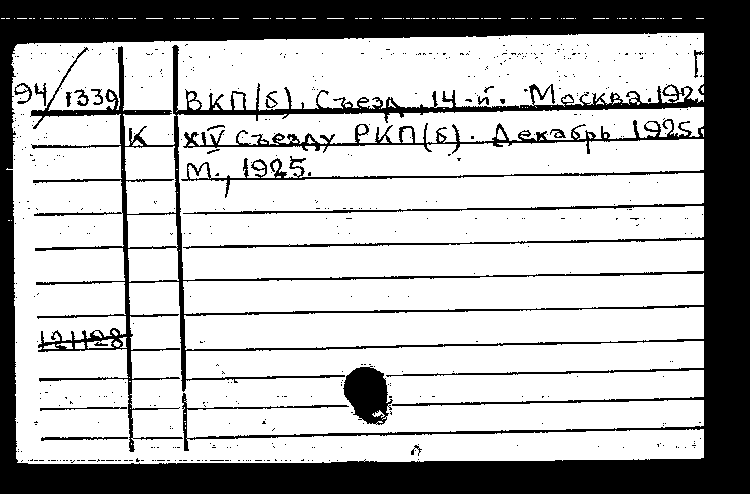 94/1339 ВКП(б). Съезд, 14-й. Москва. 1925
К XIV съезду РКП(б). Декабрь 1925 г
М., 1925.
121128